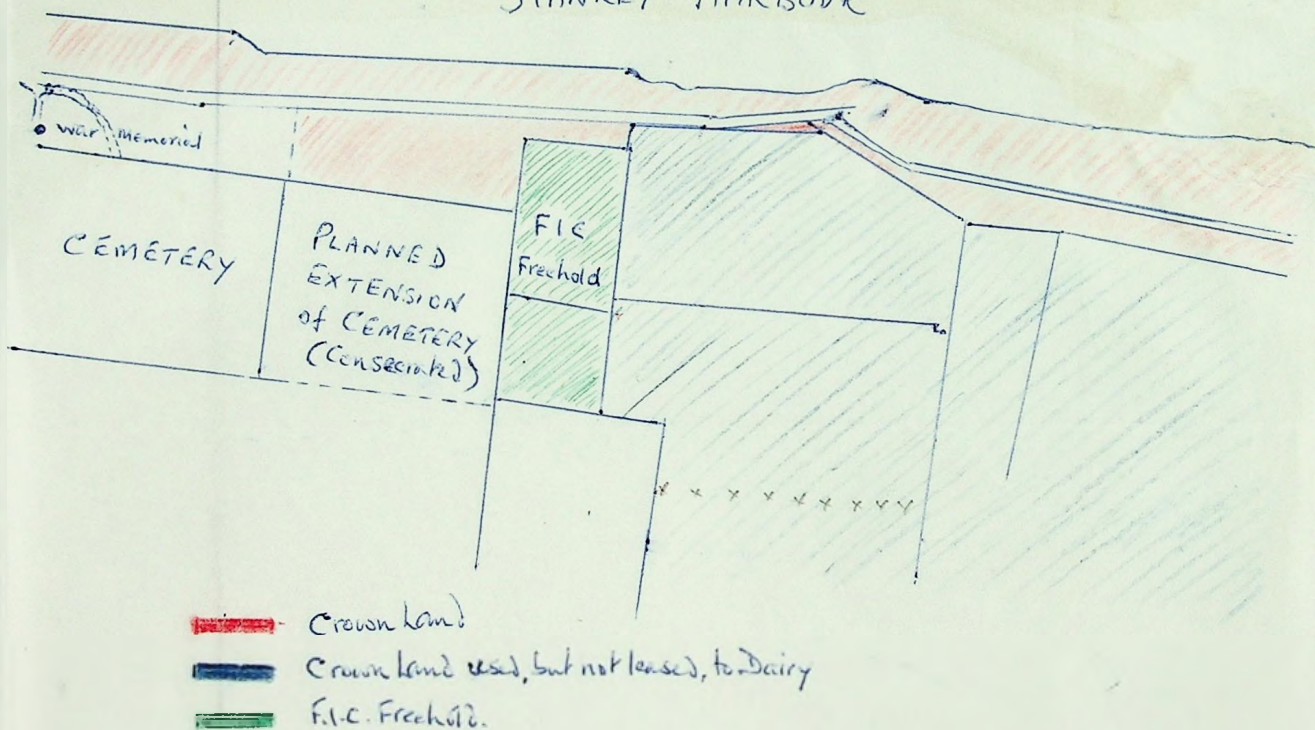 STANLEY HARBOUR
War Memorial
CEMETERY
PLANNED
EXTENSION
of CEMETERY
(Consecrated)
FIC
Freehold
Crown Land
Crown Land used, but not leased, to Dairy
F.I.C. Freehold.